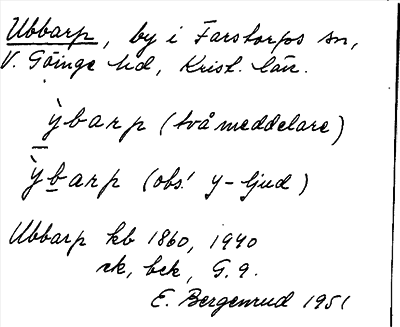 Ubbarp, by i Farstorps sn,
V. Göinge hd, Krist. län.
ỳbarp (två meddelare)
ỳbarp (obs! y-ljud)
Ubbarp kb 1860, 1940
rk, bek, G. 9.
E. Bergenrud 1951